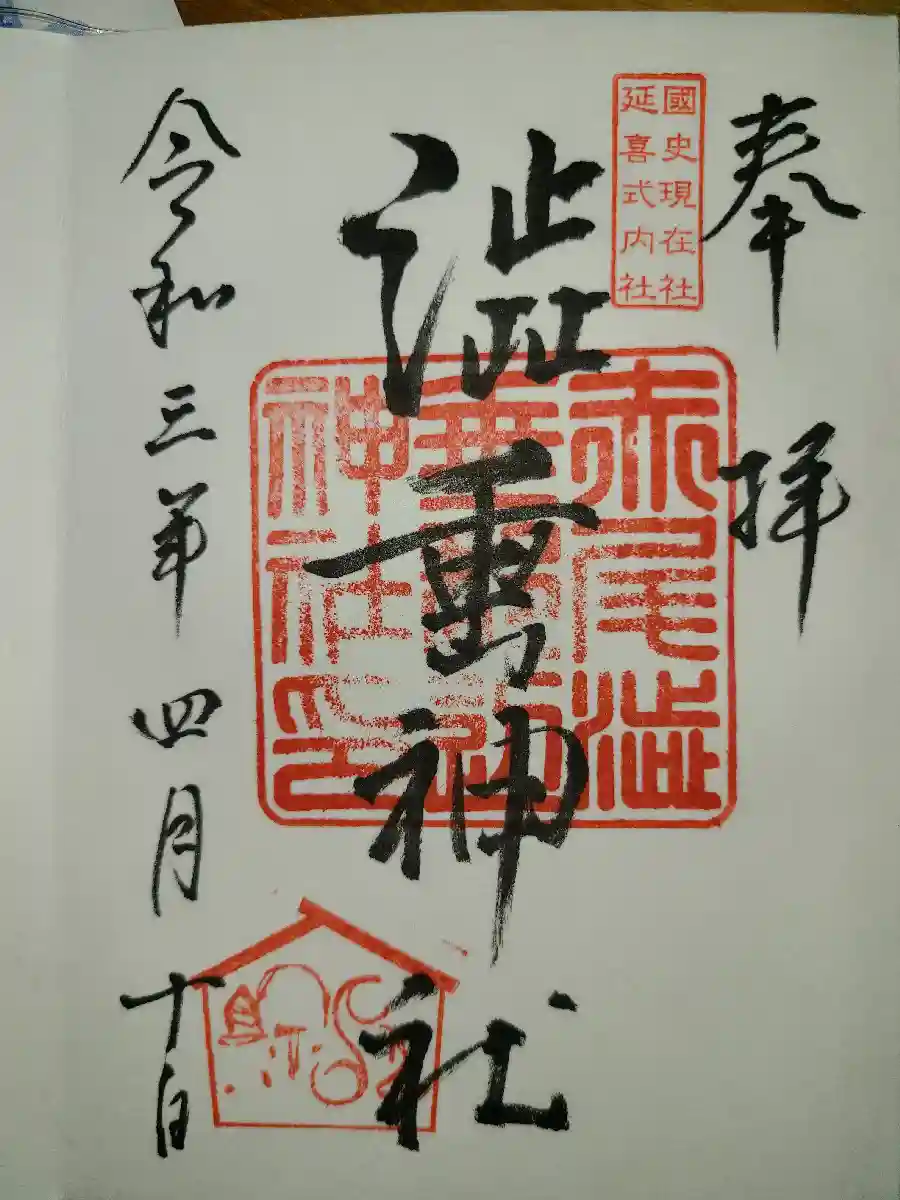 奉拝
國史現在社
延喜式内社
澁垂神社
赤尾澁
垂
神社印
令和三年四月十日